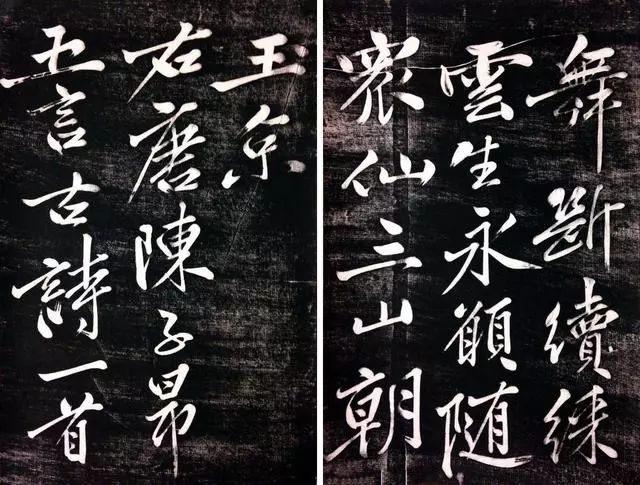 舞斷續綵
雲生永願隨
衆仙三山朝
玉京
右唐陳子昂
五言古詩一首